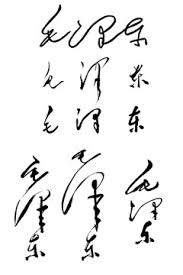 毛泽东
毛泽东
毛泽东
毛泽东
毛泽东
毛泽东